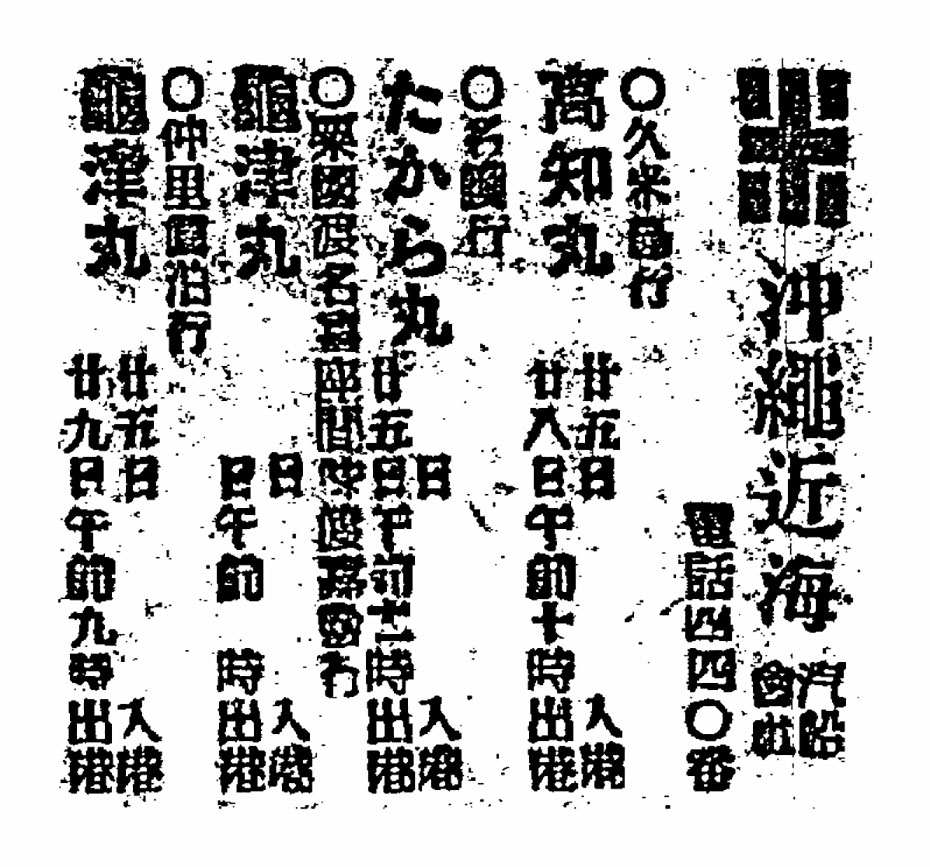 沖縄近海
汽船
會社
電話四四〇番
〇久米島行
高知丸
廿五日 入港
廿八日午前十時出港
〇名護行
たから丸
日 入港
廿五日午前十二時出港
〇粟國渡名喜座間味慶良間行
龜津丸
日 入港
日午前 時出港
〇仲里眞泊行
龜津丸
廿五日 入港
廿九日午前九時出港